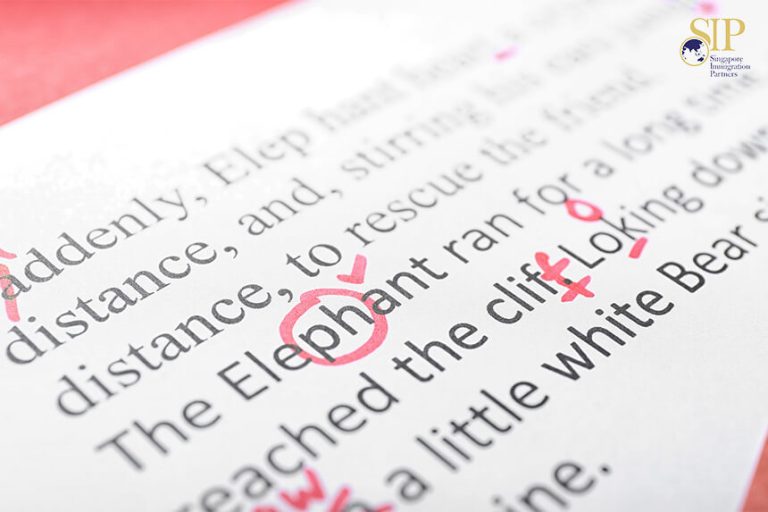 SIP
Singapore
Immigration
Partners
addenly, Elep hant
distance, and, stirring
distance, to rescue the friend
The Elephant ran for a long
reached the clif. Loking down
a little white Bear